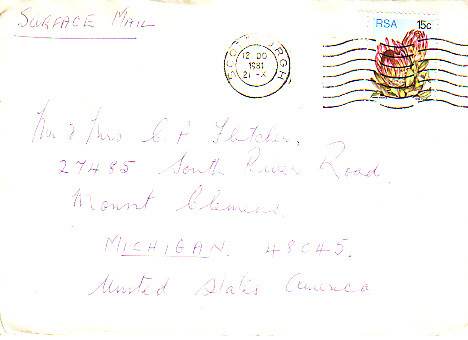 SURFACE MAIL
RSA 15c
SCOTTBURGH
12 00
1981
21-X
Mr & Mrs C F Fletcher,
27485 South River Road
Mount Clemens
MICHIGAN. 48045.
United States America